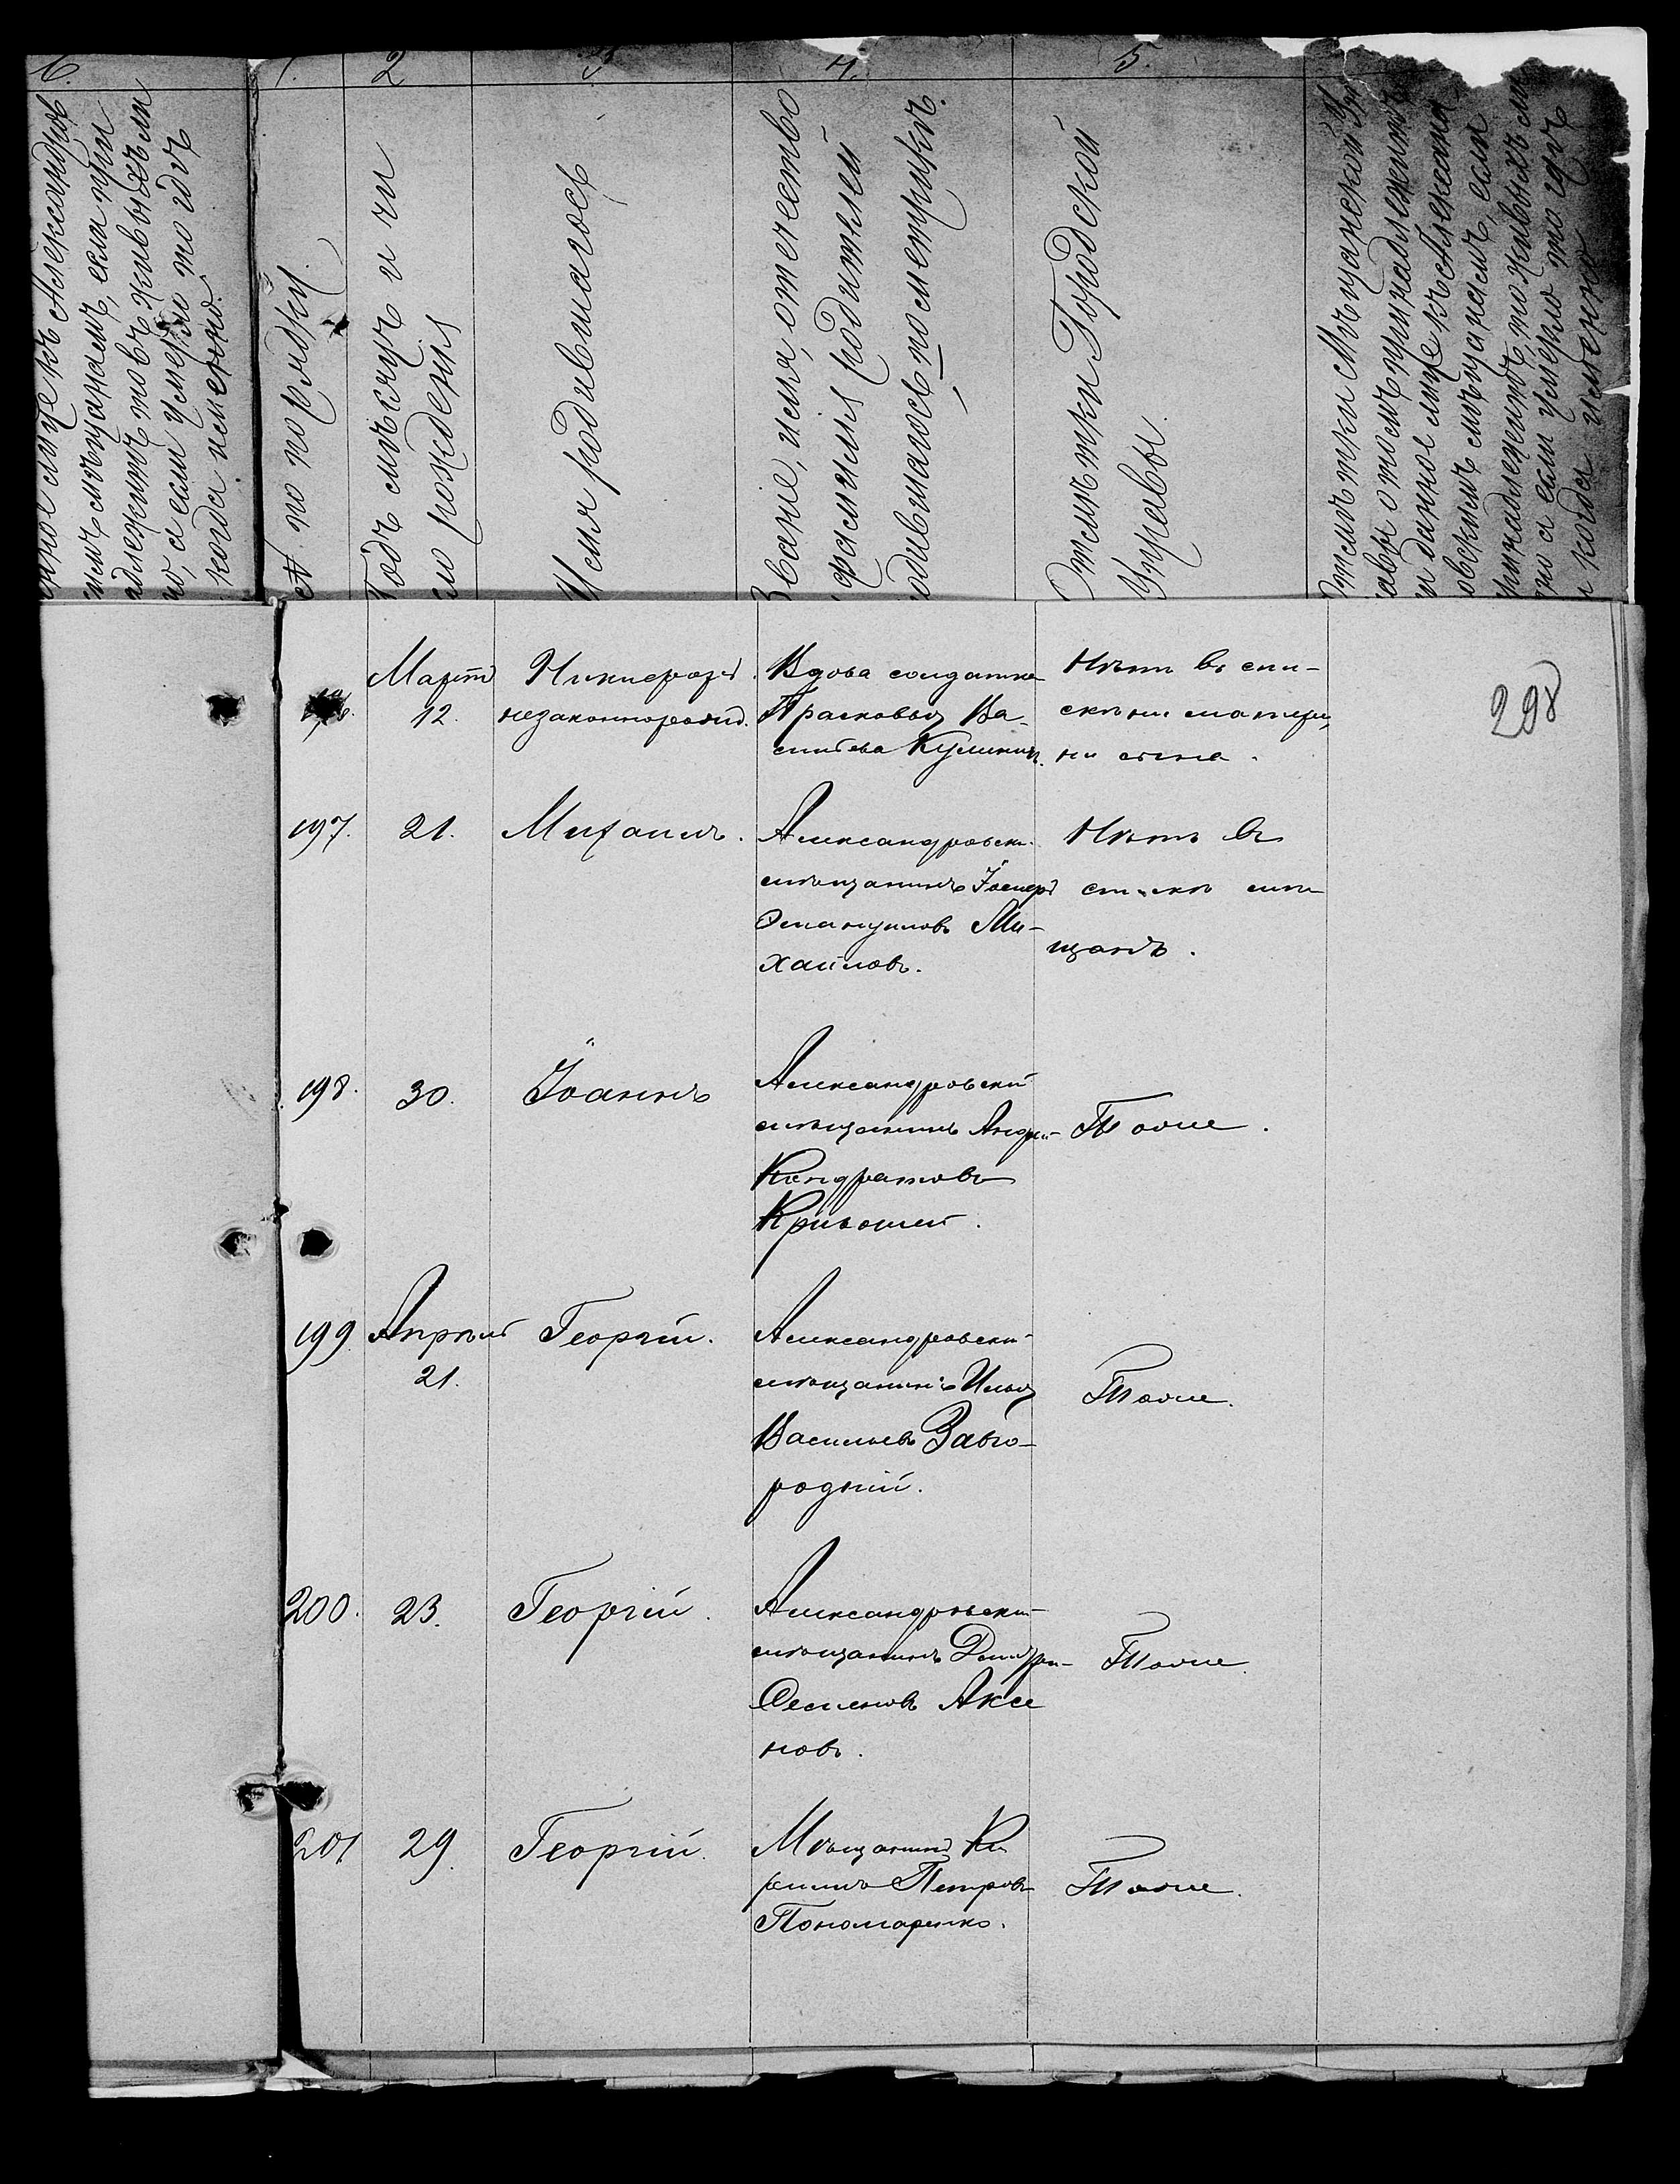 6.
1.
2
3
4.
5.
когда именно.
№ по порядку.
Годъ мѣсяцъ и чи
сло рожденія
Имя родившагося
Званіе, имя, отечество
фамилія родителей
родившагося по метрикѣ.
Отмѣтки Городской
Управы.
Отмѣтки Мѣщанской Упр
авы о томъ принадлежитъ
ли данное лице къ Александ
ровскимъ мѣщанамъ, если
принадлежитъ, то живыхъ ли
оно а если умерло то гдѣ
и когда именно
298
Мартъ
12.
Никифоръ
незаконнорожд.
Вдова солдатка
Прасковья Ва-
сильева
Нѣтъ въ спи-
скѣ ни матери,
ни сына.
197.
21.
Михаилъ.
Александровскій
мѣщанинъ Іосифъ
Эмануиловъ Ми-
хайловъ.
Нѣтъ въ
спискѣ мѣ
щанъ.
198.
30.
Іоаннъ
Александровскій
мѣщанинъ Андрей
Кондратовъ
Кривошей.
Тоже.
199
Апрѣль
21.
Георгій.
Александровскій
мѣщанинъ Илья
Васильевъ Заго-
родній.
Тоже.
200.
23.
Георгій.
Александровскій
мѣщанинъ Дмитрій
Семеновъ Аксе
новъ.
Тоже.
201
29.
Георгій.
Мѣщанинъ Ки
риллъ Петровъ
Пономаренко.
Тоже.